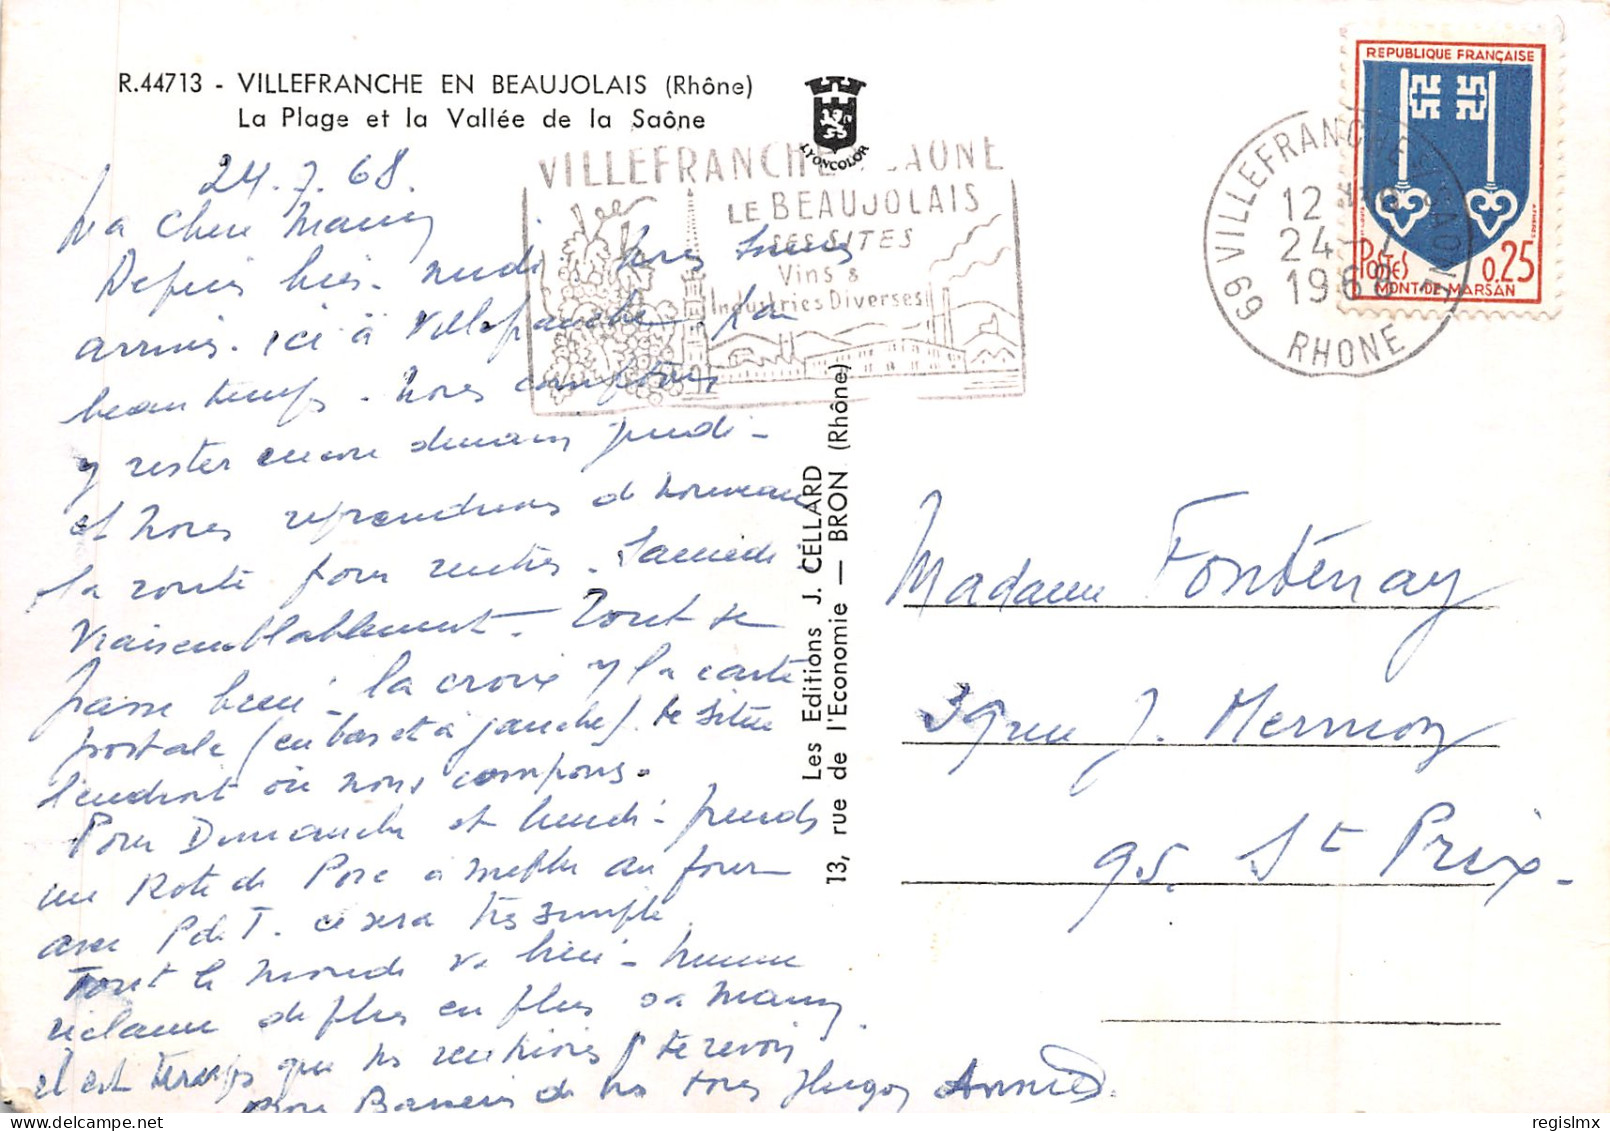 R.44713 - VILLEFRANCHE EN BEAUJOLAIS (Rhône)
La Plage et la Vallée de la Saône
LYONCOLOR
VILLEFRANCHE SAONE
LE BEAUJOLAIS
SES SITES
Vins &
Industries Diverses
REPUBLIQUE FRANÇAISE
POSTES 0,25
MONT-DE-MARSAN
69 VILLEFRANCHE SUR SAONE
12 H
24-7
1968
RHONE
24.7.68.
Ma Chère Mamy
Depuis hier midi nous sommes
arrivés ici à Villefranche
beau temps. Nous comptons
y rester encore demain jeudi -
et nous reprendrons de nouveau
la route pour rentrer. Samedi
vraisemblablement. Tout se
passe bien. la croix y la carte
postale (en bas et à gauche). te situe
l'endroit où nous campons.
Pour Dimanche et lundi - prends
un Roti de Porc à mettre au four
avec P de T. ce sera très simple
Tout le monde va bien -
réclame de plus en plus sa Mamy.
il est temps que ns rentrions te revoir
Bons Baisers de ns tous
Les Editions J. CELLARD
13, rue de l'Economie — BRON (Rhône)
Madame Fontenay
39 rue J. Mermoz
95. St Prix.
regislmx